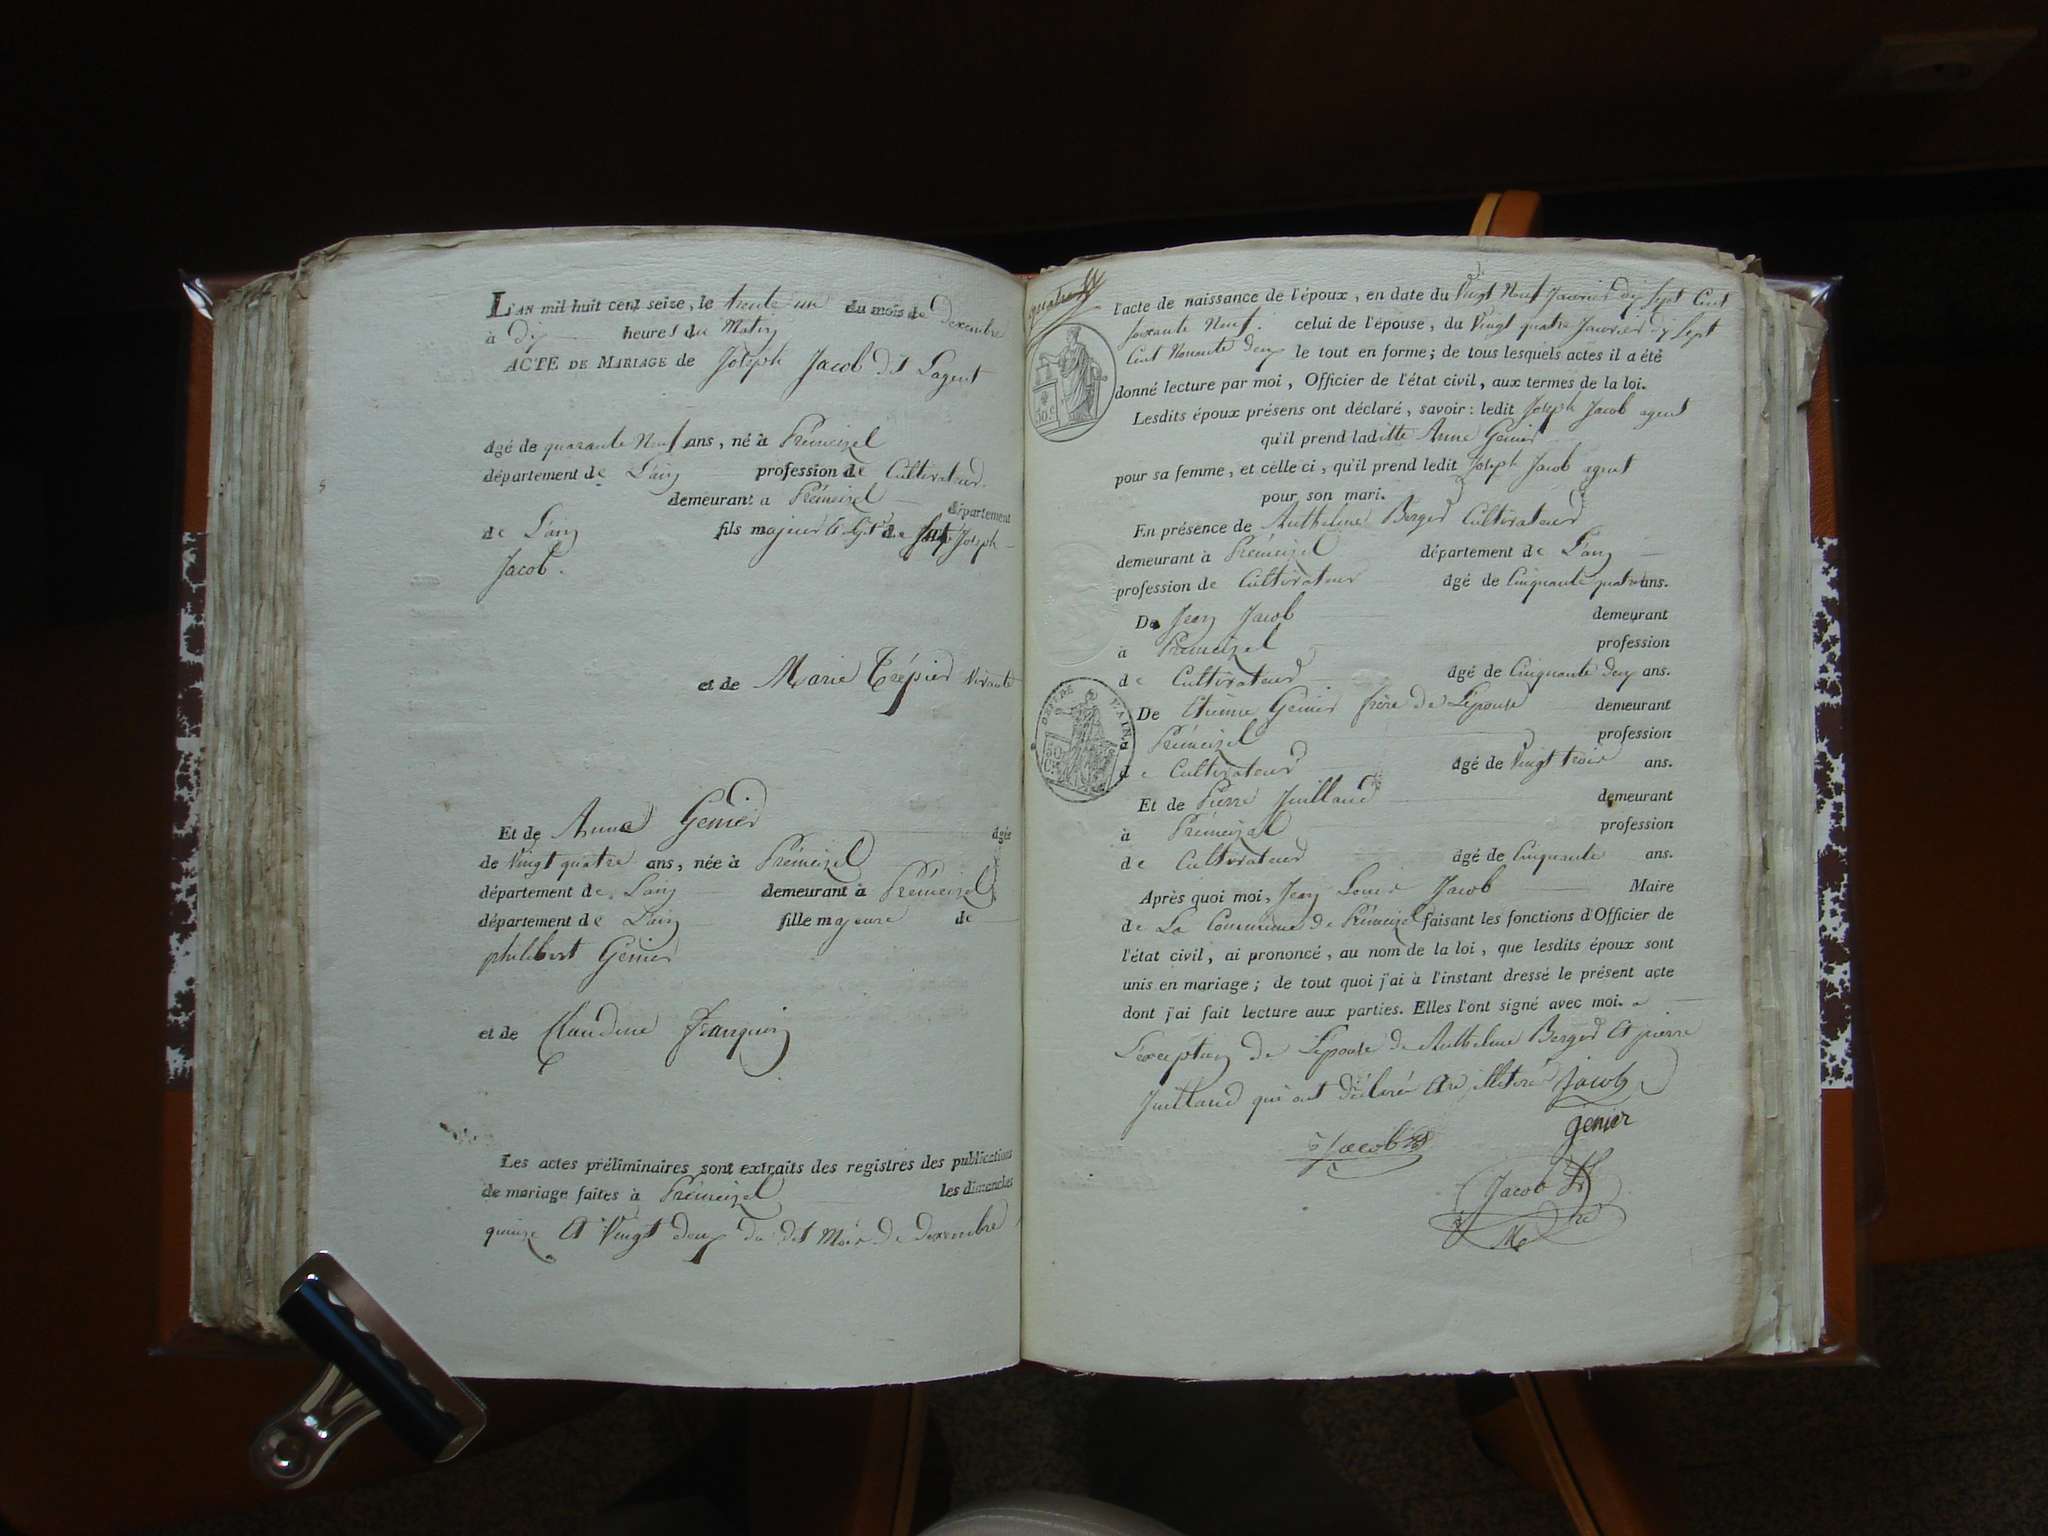 L'AN mil huit cent seize, le trente un du mois de Dexembre
à Dix heures du Matin
ACTE DE MARIAGE de Joseph Jacob dit Lagent
âgé de quarante Neuf ans, né à Prémeizel
département de L'ain profession de Cultivateur
demeurant à Prémeizel département
de L'ain fils majeur de feu Joseph
Jacob.
et de Marie Trépier vivante
Et de Anne Genier âgée
de Vingt quatre ans, née à Prémeizel
département de L'ain demeurant à Prémeizel
département de L'ain fille majeure de
philibert Genier
et de Claudine Franquin
Les actes préliminaires sont extraits des registres des publications
de mariage faites à Prémeizel les dimanches
quinze et Vingt deux du dit Mois de dexembre
l'acte de naissance de l'époux, en date du Vingt Neuf Janvier dix Sept Cent
soixante Neuf. celui de l'épouse, du Vingt quatre Janvier dix Sept
Cent Nonante deux le tout en forme; de tous lesquels actes il a été
donné lecture par moi, Officier de l'état civil, aux termes de la loi.
Lesdits époux présens ont déclaré, savoir: ledit Joseph Jacob agent
qu'il prend laditte Anne Genier
pour sa femme, et celle ci, qu'il prend ledit Joseph Jacob agent
pour son mari.
En présence de Anthelme Berger Cultivateur
demeurant à Prémeizel département de L'ain
profession de Cultivateur âgé de Cinquante quatre ans.
De Jean Jacob demeurant
à Prémeizel profession
de Cultivateur âgé de Cinquante deux ans.
De Etienne Genier frère de L'épouse demeurant
Prémeizel profession
de Cultivateur âgé de Vingt trois ans.
Et de Pierre Juilland demeurant
à Prémeizel profession
de Cultivateur âgé de Cinquante ans.
Après quoi moi, Jean Louis Jacob Maire
de La Commune de Prémeizel faisant les fonctions d'Officier de
l'état civil, ai prononcé, au nom de la loi, que lesdits époux sont
unis en mariage; de tout quoi j'ai à l'instant dressé le présent acte
dont j'ai fait lecture aux parties. Elles l'ont signé avec moi. a
L'exception de L'épouse de Anthelme Berger et pierre
Juilland qui ont déclaré être illitérés Jacob
genier
Jacob
Jacob